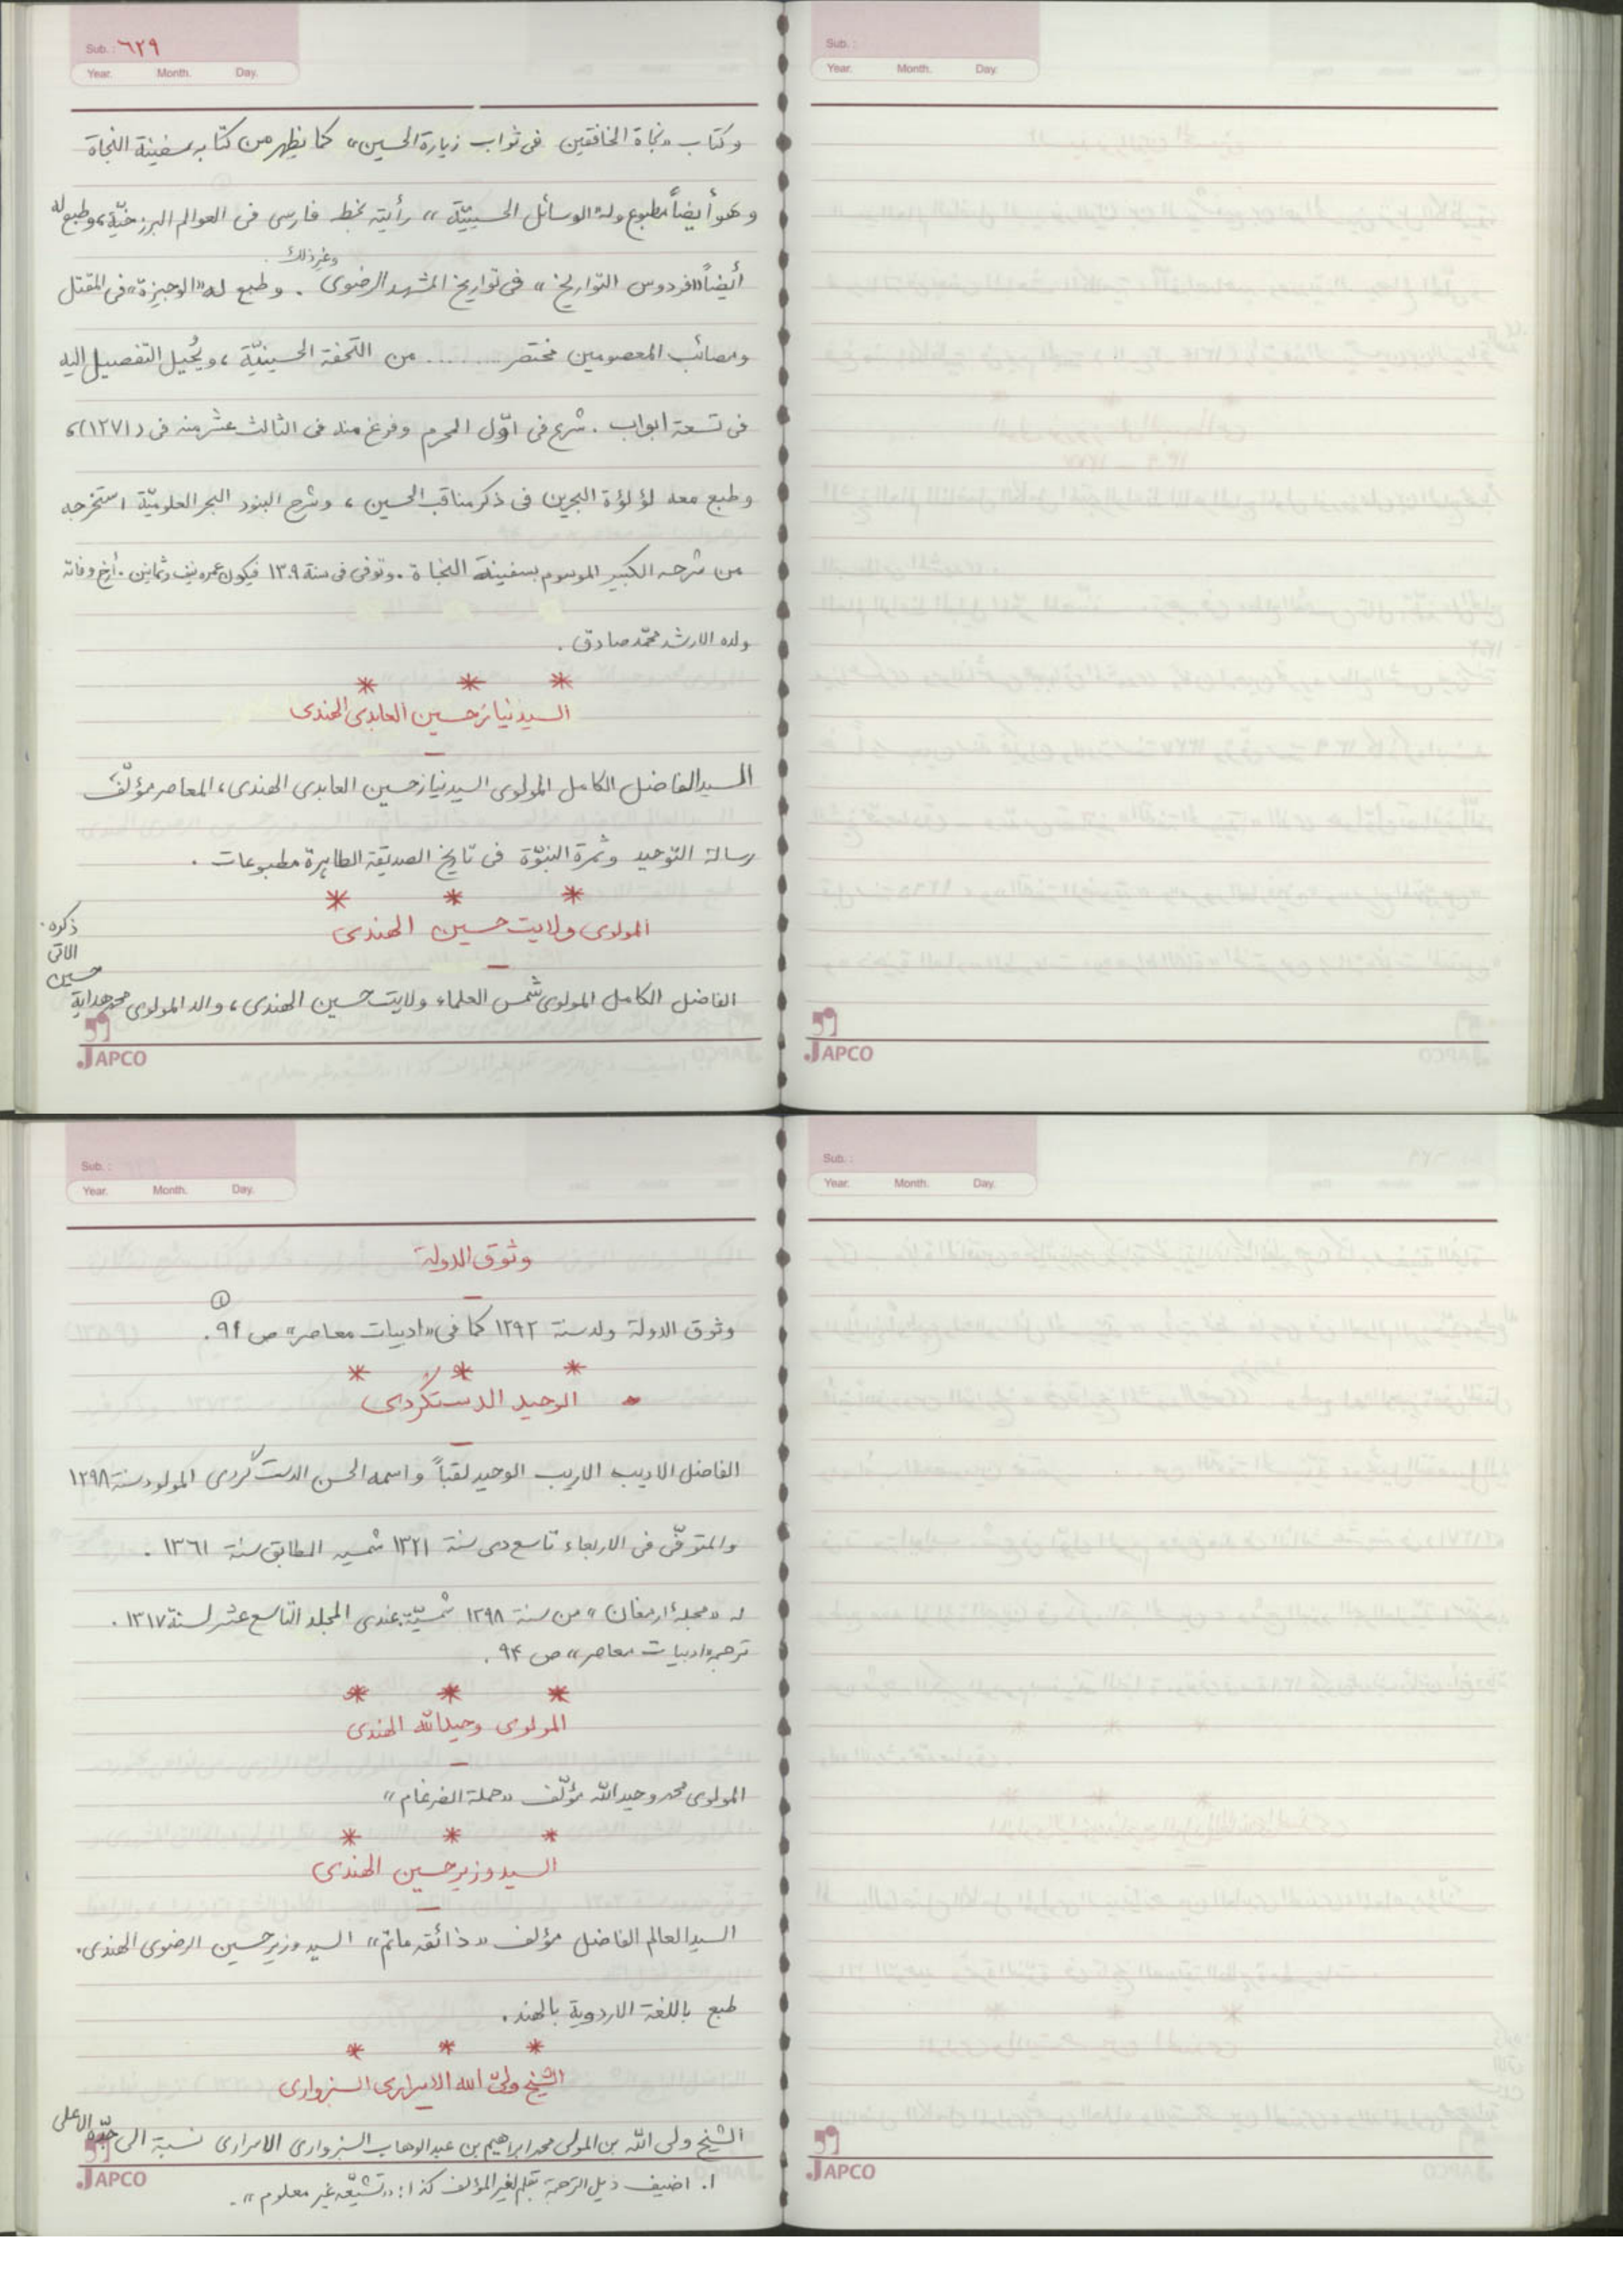 Sub. : ٦٢٩
Year. Month. Day.
وكتاب «نجاة الخافقين فى ثواب زيارة الحسين» كما يظهر من كتابه سفينة النجاة
و هو أيضاً مطبوع وله «الوسائل الحسينيّة» رأيته بخط فارسى فى العوالم البرزخيّة، وطبع له
أيضاً «فردوس التواريخ» فى تواريخ المشهد الرضوى وغير ذلك . وطبع له «الوجيزة» فى المقتل
ومصائب المعصومين مختصر ........ من التحفة الحسينيّة ، ويُحيل التفصيل اليه
فى تسعة ابواب . شرع فى اوّل المحرم وفرغ منه فى الثالث عشر منه فى (١٢٧١)،
وطبع معه لؤلؤة البحرين فى ذكر مناقب الحسين ، وشرح البنود البحر العلوميّة استخرجه
من شرحه الكبير الموسوم بسفينة النجاة . وتوفى فى سنة ١٣٠٩ فيكون عمره نيف وثمانين . أرخ وفاته
ولده الارشد محمّد صادق .
* * *
السيد نياز حسين العابدى الهندى
السيد الفاضل الكامل المولوى السيد نياز حسين العابدى الهندى ، المعاصر مؤلّف
رسالة التوحيد وثمرة النبوّة فى تاريخ الصديقة الطاهرة مطبوعات .
* * *
المولوى ولايت حسين الهندى
الفاضل الكامل المولوى شمس العلماء ولايت حسين الهندى ، والد المولوى محمد هداية
حسين
الاتى
ذكره .
JAPCO
Sub. :
Year. Month. Day.
JAPCO
Sub. :
Year. Month. Day.
وثوق الدولة
وثوق الدولة ولد سنة ١٢٩٢ كما فى «ادبيات معاصر» ص ٩٤ . ①
* * *
الوحيد الدستگردى
الفاضل الاديب الاريب الوحيد لقباً و اسمه الحسن الدستگردى المولود سنة ١٢٩٨
والمتوفّى فى الاربعاء تاسع دى سنة ١٣٢١ شمسيه المطابق سنة ١٣٦١ .
له «مجلۀ ارمغان» من سنة ١٢٩٨ شمسيّة عندى المجلد التاسع عشر لسنة ١٣١٧ .
ترجمه «ادبيات معاصر» ص ٩۴ .
* * *
المولوى وحيد الله الهندى
المولوى محمد وحيد الله مؤلّف «حملة الضرغام»
* * *
السيد وزير حسين الهندى
السيد العالم الفاضل مؤلف «ذائقه ماتم» السيد وزير حسين الرضوى الهندى .
طبع باللغة الاردوية بالهند .
* * *
الشيخ ولىّ الله الاسرارى السبزوارى
الشيخ ولى الله بن المولى محمد ابراهيم بن عبد الوهاب السبزوارى الاسرارى نسبة الى جدّه الاعلى
١. اضيف ذيل الترجمة بقلم لغير المؤلف كذا : «تشيّعه غير معلوم» .
JAPCO
Sub. :
Year. Month. Day.
JAPCO